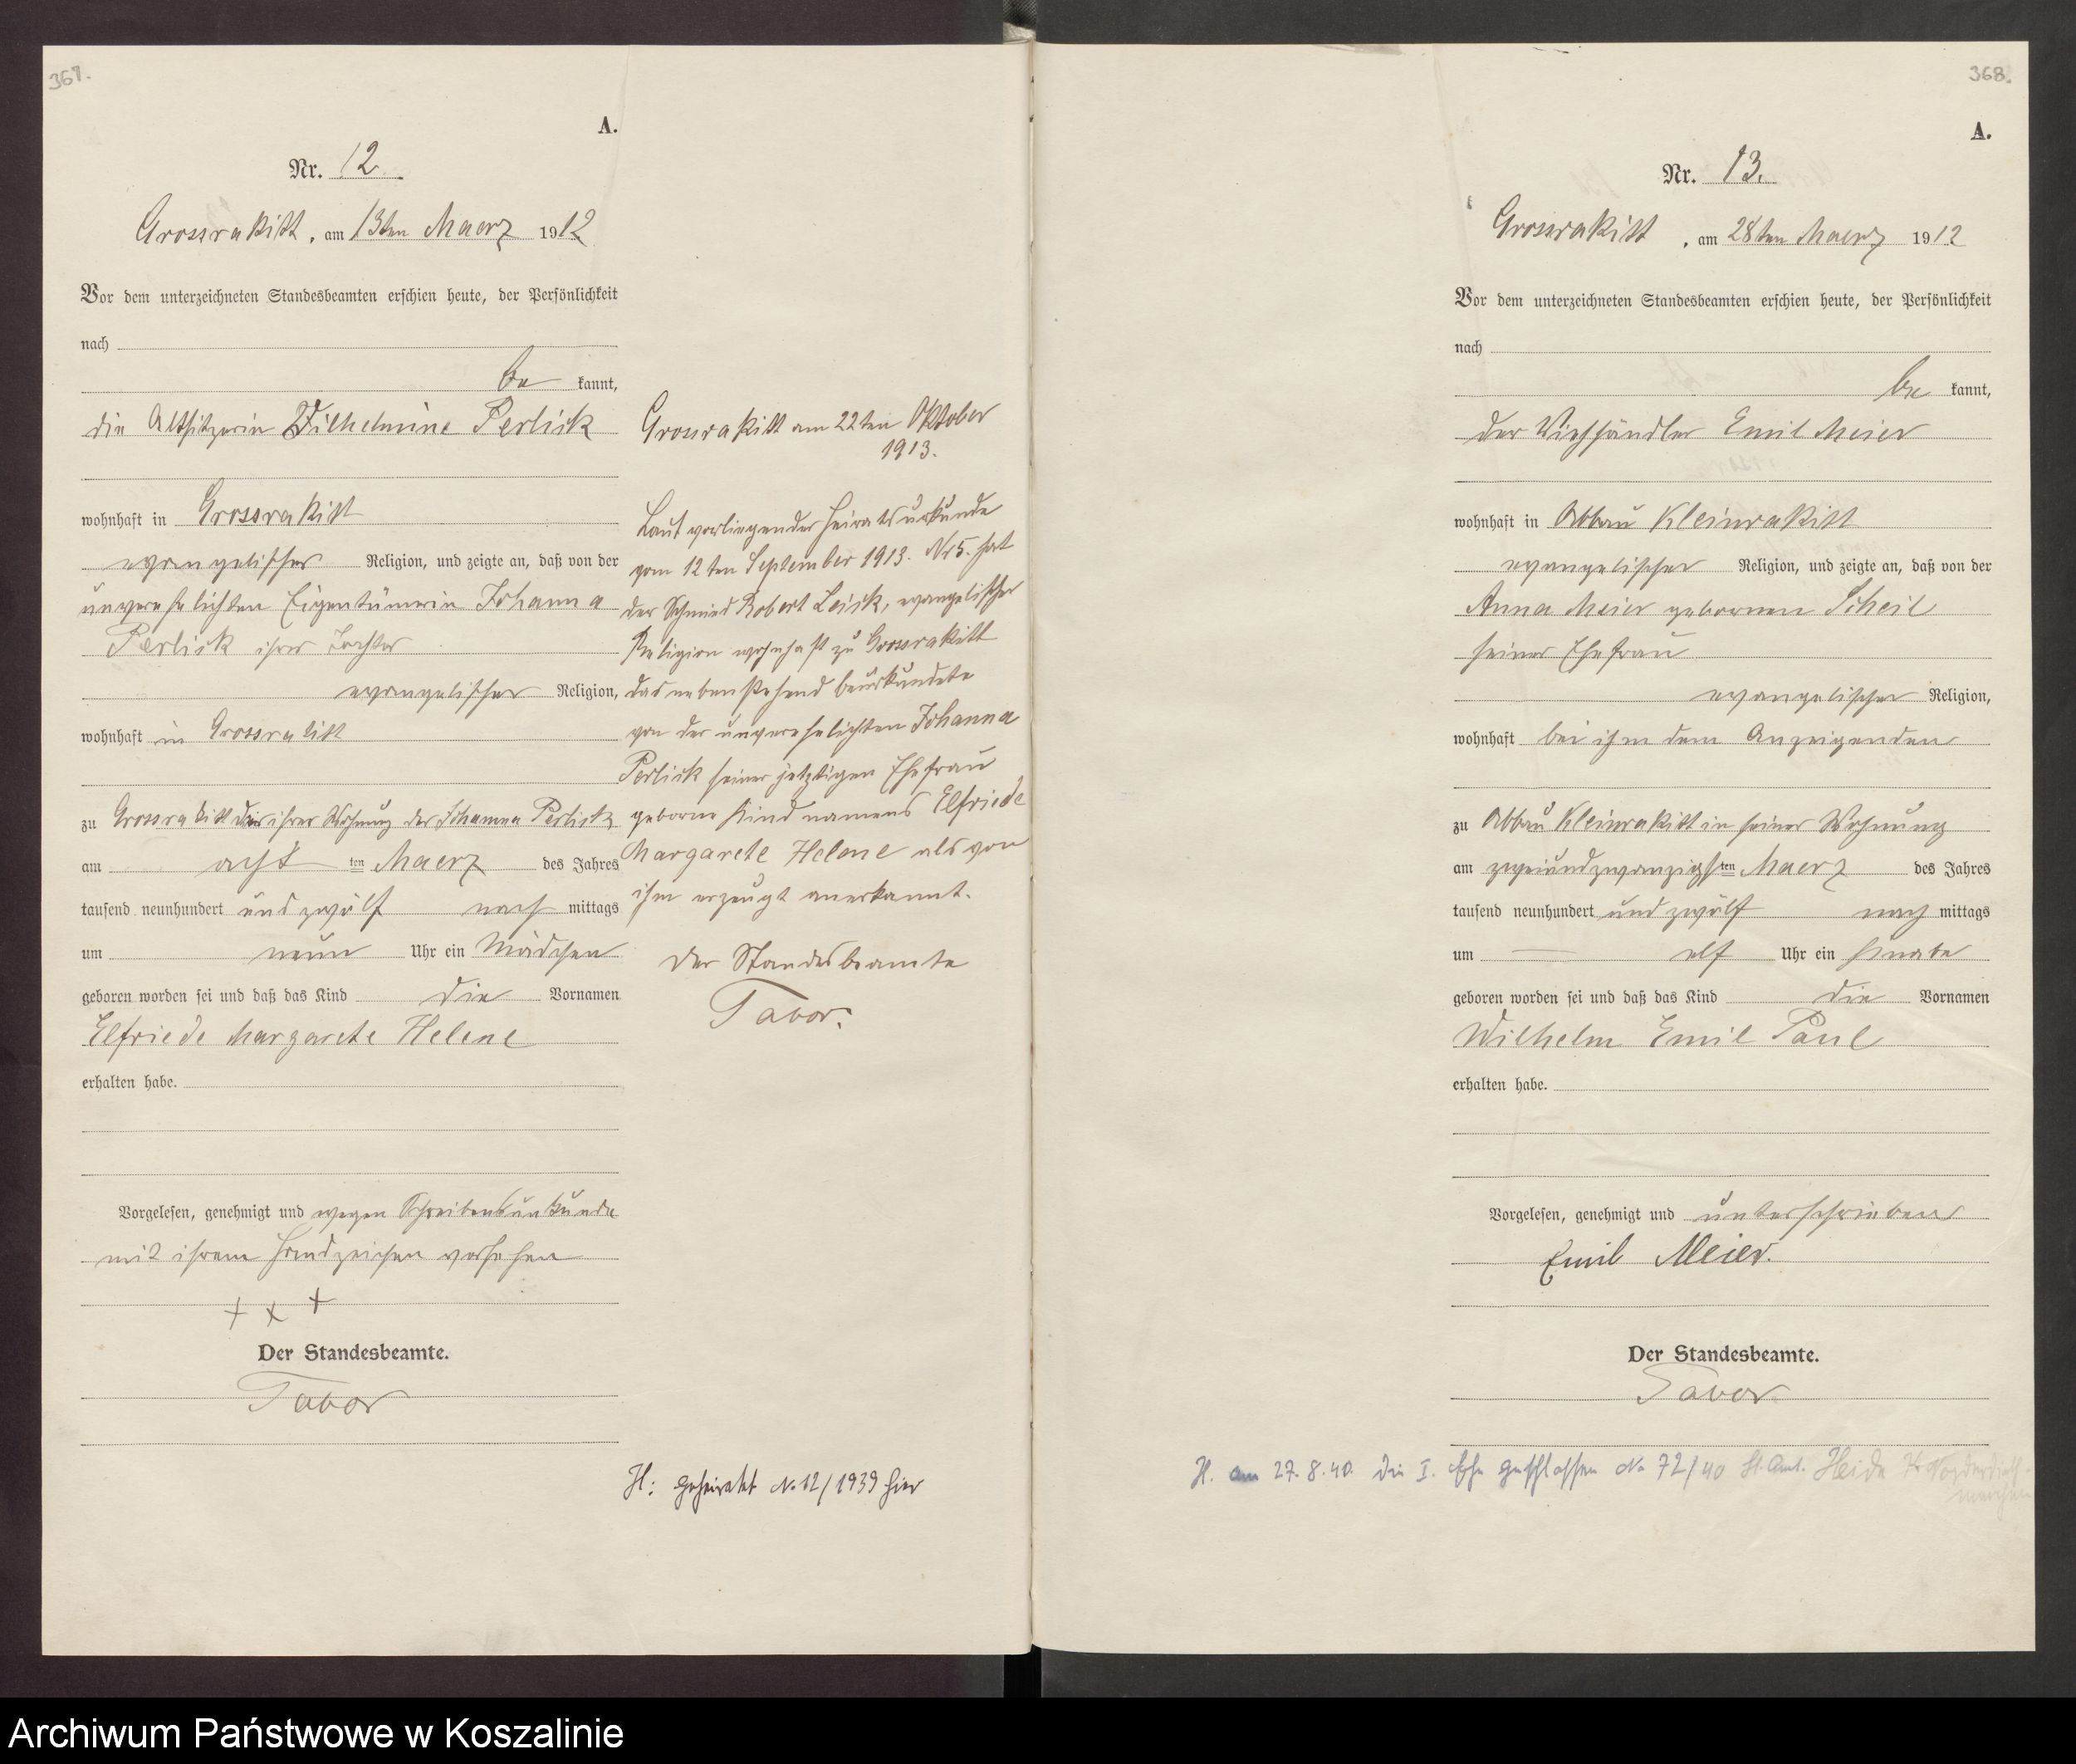 367.
A.
Nr. 12.
Grossrakitt, am 13ten Maerz 1912
Vor dem unterzeichneten Standesbeamten erschien heute, der Persönlichkeit
nach
be kannt,
die Altsitzerin Wilhelmine Perlick
wohnhaft in Grossrakitt
evangelischer Religion, und zeigte an, daß von der
unverehelichten Eigentümerin Johanna
Perlick ihrer Tochter
evangelischer Religion,
wohnhaft in Grossrakitt
zu Grossrakitt in ihrer Wohnung der Johanna Perlick
am acht ten Maerz des Jahres
tausend neunhundert und zwölf nach mittags
um neun Uhr ein Mädchen
geboren worden sei und daß das Kind die Vornamen
Elfriede Margarete Helene
erhalten habe.
Vorgelesen, genehmigt und wegen Schreibensunkunde
mit ihrem Handzeichen versehen
+ + +
Der Standesbeamte.
Tabor
Grossrakitt am 22ten Oktober
1913.
Laut vorliegender Heiratsurkunde
vom 12ten September 1913. Nr 5. hat
der Schmied Robert Leick, evangelischer
Religion wohnhaft zu Grossrakitt
das nebenstehend beurkundete
von der unverehelichten Johanna
Perlick seiner jetztigen Ehefrau
geborne Kind namens Elfriede
Margarete Helene als von
ihm erzeugt anerkannt.
Der Standesbeamte
Tabor.
H: geheiratet No. 12/1939 hier
368.
A.
Nr. 13.
Grossrakitt, am 28ten Maerz 1912
Vor dem unterzeichneten Standesbeamten erschien heute, der Persönlichkeit
nach
be kannt,
der Viehhändler Emil Meier
wohnhaft in Abbau Kleinrakitt
evangelischer Religion, und zeigte an, daß von der
Anna Meier gebornen Scheil
seiner Ehefrau
evangelischer Religion,
wohnhaft bei ihm dem Anzeigenden
zu Abbau Kleinrakitt in seiner Wohnung
am zweiundzwanzigsten Maerz des Jahres
tausend neunhundert und zwölf nach mittags
um elf Uhr ein Knabe
geboren worden sei und daß das Kind die Vornamen
Wilhelm Emil Paul
erhalten habe.
Vorgelesen, genehmigt und unterschrieben
Emil Meier.
Der Standesbeamte.
Tabor
H. am 27.8.40. die I. Ehe geschlossen No 72/40 St. Amt. Heide
Archiwum Państwowe w Koszalinie